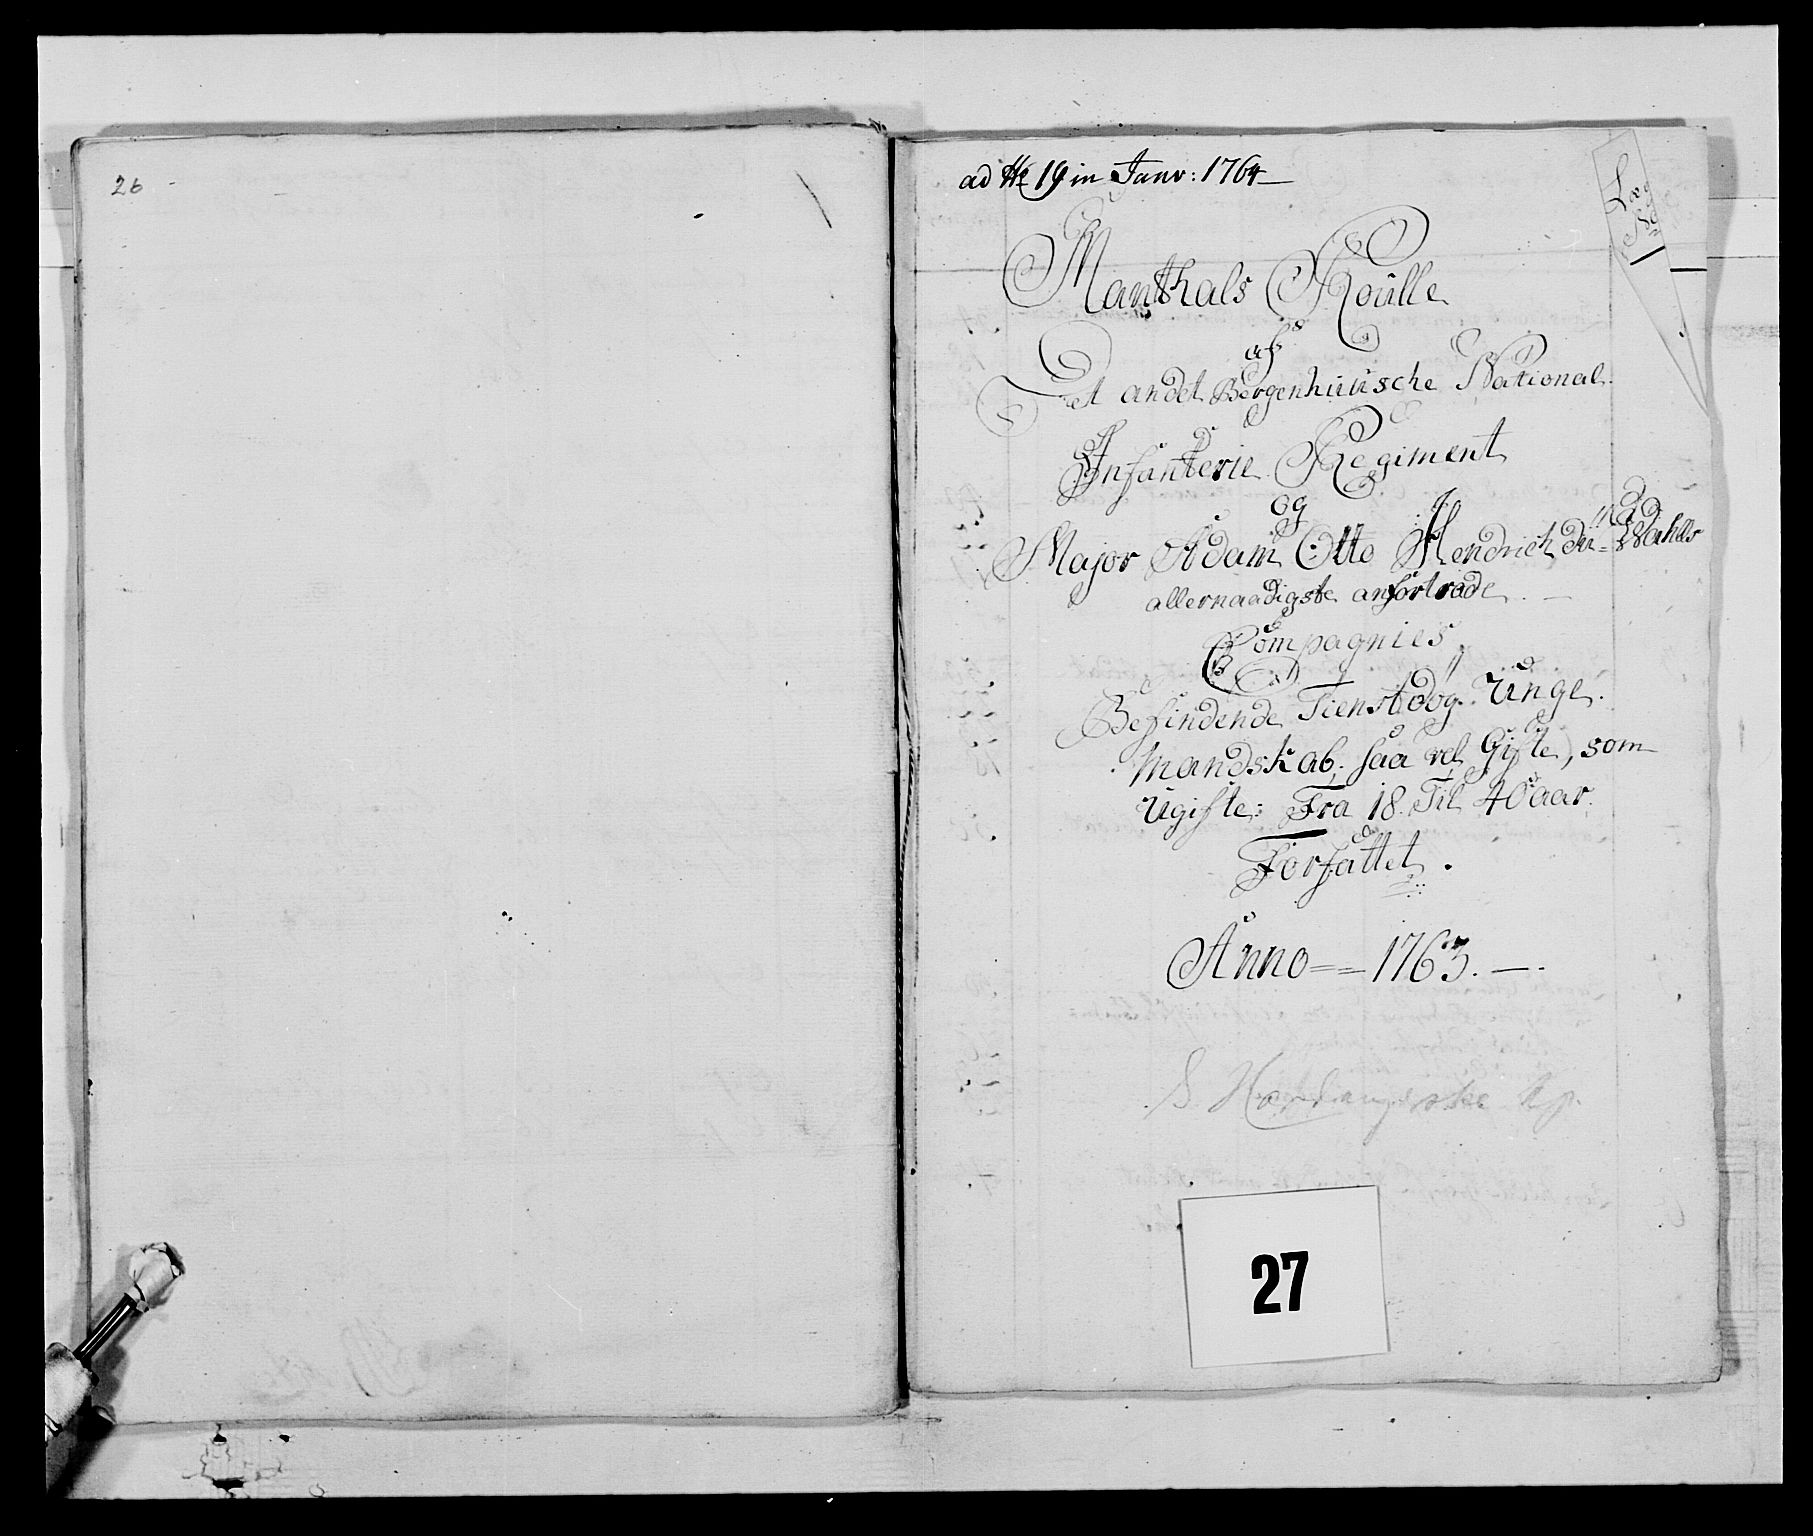 26
ad № 19 in Janv: 1764
Læg
N
Manthals Roulle
af
Det andet Bergenhuusche National
Infanterie Regiment
og
Major Adam Otto Hendrich
allernaadigste anfortrode
Compagnies
Befindende Tienstdøg Unge
Mandskab, saa vel Gifte, som
Ugifte: Fra 18. Til 40 aar
Forfattet.
Anno == 1763.
S. Hardangerske Kp.
27